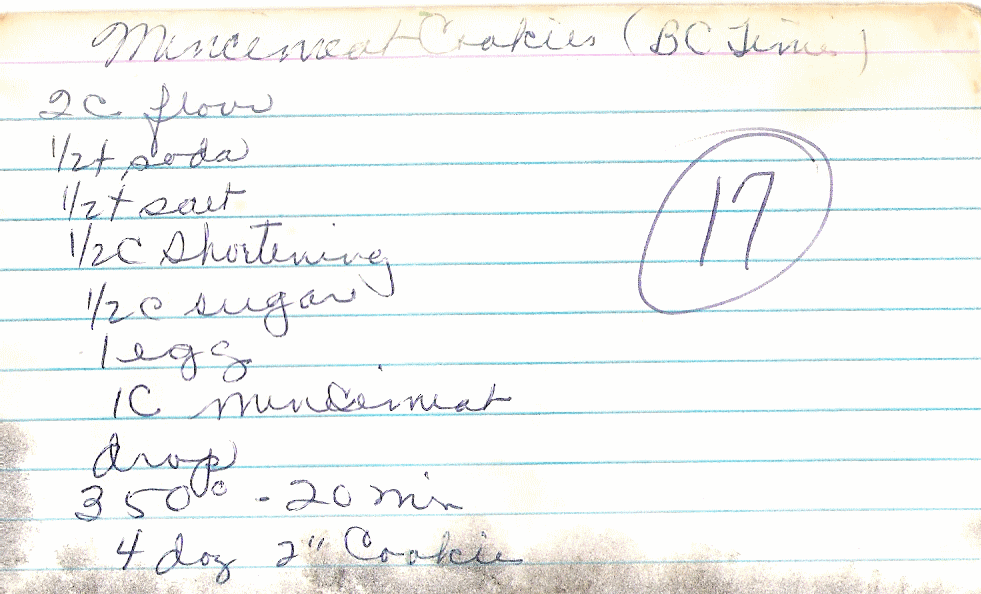 Mincemeat Cookies (BC Times)
2C flour
1/2t soda
1/2t salt
17
1/2C Shortening
1/2C sugar
1 egg
1C mincemeat
drop
350° - 20 min
4 doz 2" Cookie